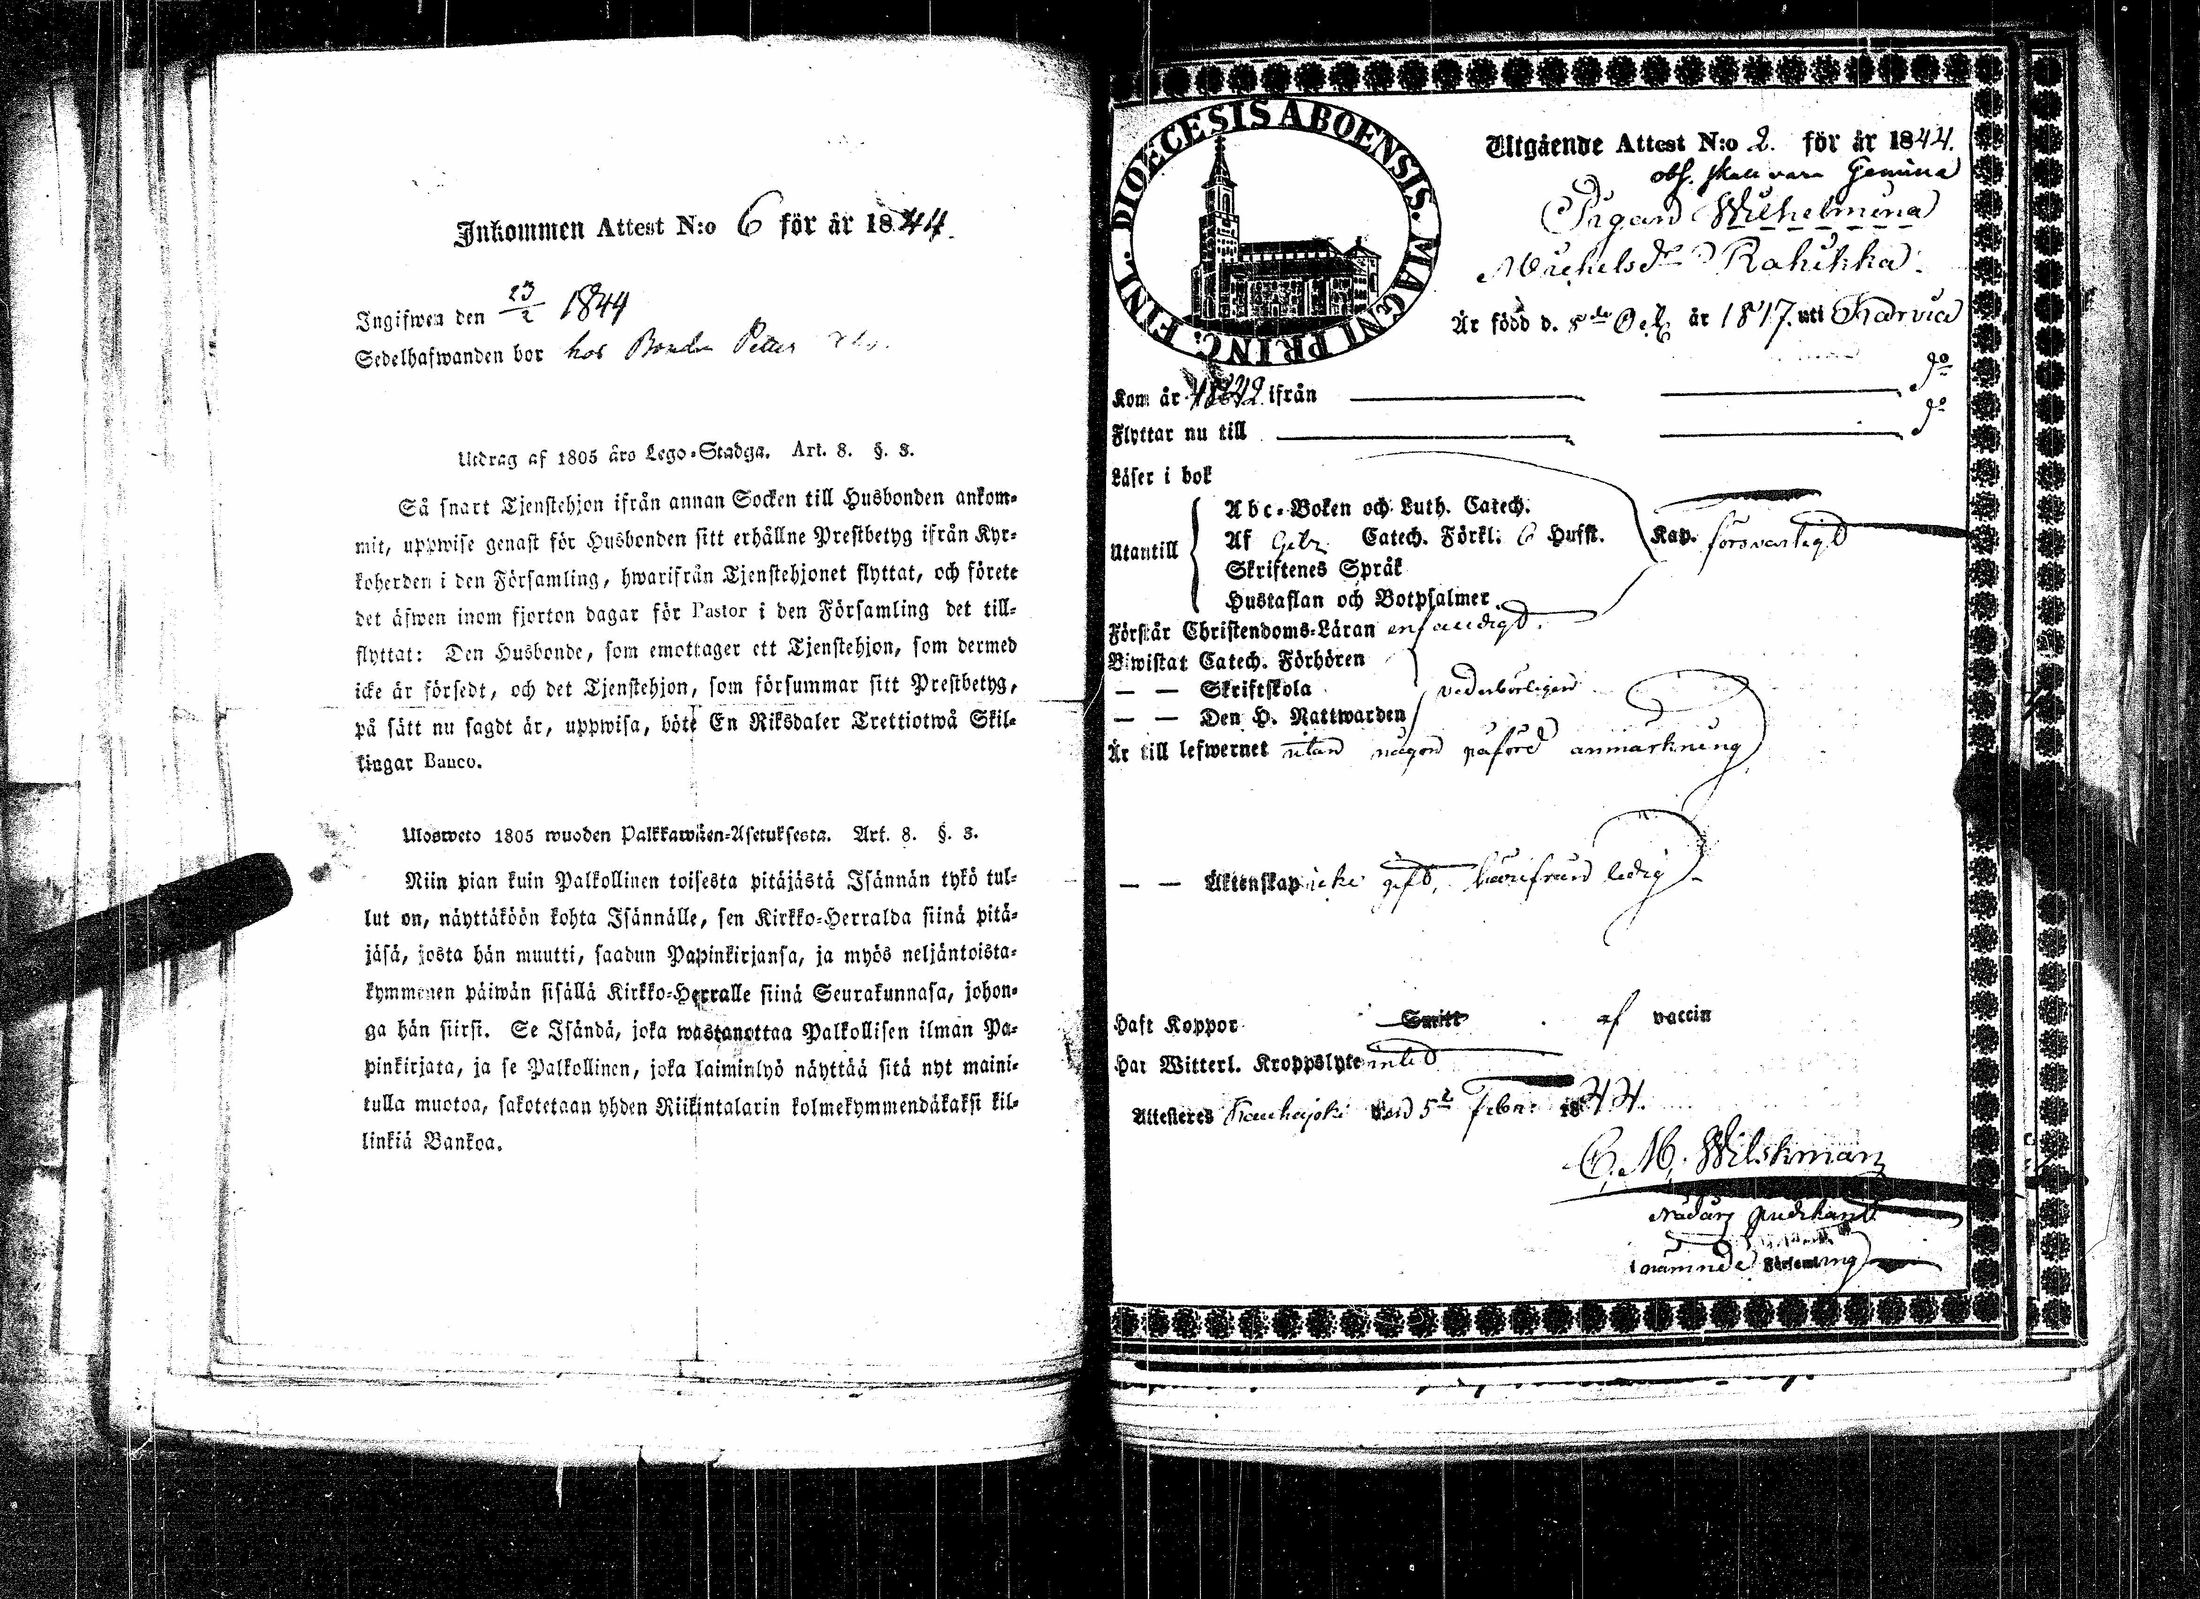 Inkommen Attest N:o 6 för år 1844.
Ingifwen den 23/2 1844
Sedelhafwanden bor hos Bonden Petter
Utdrag af 1805 års Lego-Stadga. Art. 8. §. 3.
Så snart Tjenstehjon ifrån annan Socken till Husbonden ankom-
mit, uppwise genast för Husbonden sitt erhållne Prestbetyg ifrån Kyr-
koherden i den Församling, hwarifrån Tjenstehjonet flyttat, och förete
det äfwen inom fjorton dagar för Pastor i den Församling det till-
flyttat: Den Husbonde, som emottager ett Tjenstehjon, som dermed
icke är försedt, och det Tjenstehjon, som försummar sitt Prestbetyg,
på sätt nu sagdt är, uppwisa, böte En Riksdaler Trettiotwå Skil-
lingar Banco.
Ulosweto 1805 wuoden Palkkawäen-Asetuksesta. Art. 8. §. 3.
Niin pian kuin Palkollinen toisesta pitäjästä Isännän tykö tul-
lut on, näyttäköön kohta Isännälle, sen Kirkko-Herralda siinä pitä-
jäsä, josta hän muutti, saadun Papinkirjansa, ja myös neljäntoista-
kymmenen päiwän sisällä Kirkko-Herralle siinä Seurakunnasa, johon-
ga hän siirsi. Se Isändä, joka wastanottaa Palkollisen ilman Pa-
pinkirjata, ja se Palkollinen, joka laiminlyö näyttää sitä nyt maini-
tulla muotoa, sakotetaan yhden Riikintalarin kolmekymmendäkaksi kil-
linkiä Bankoa.
FINL. DIOECESIS ABOENSIS. MAGNI PRINC.
Utgående Attest N:o 2. för år 1844.
obs. skall vara Gemina
Pigan Wilhelmina
Michelsdr Rahikka.
Är född d. 8de Oct. år 1817. uti Karvia
Kom år 1842 ifrån do
Flyttar nu till do
Läser i bok
Abc-Boken och Luth. Catech.
Utantill Af Catech. Förkl. 6 Hufst. Kap. försvarligt
Skriftenes Språk
Hustaflan och Botpsalmer
Förstår Christendoms-Läran enfaldigt.
Biwistat Catech. Förhören
— — Skriftskola vederbörligen
— — Den H. Nattwarden
Är till lefwernet utan någon påförd anmärkning
— — Äktenskap icke gift, härifrån ledig
Haft Koppor Smitt af vaccin
Har Witterl. Kroppslyte intet
Attesteres Kauhajoki den 5te Febr. 1844.
C. M. Wilskman
Nådårs predikant
i nämnde Församling